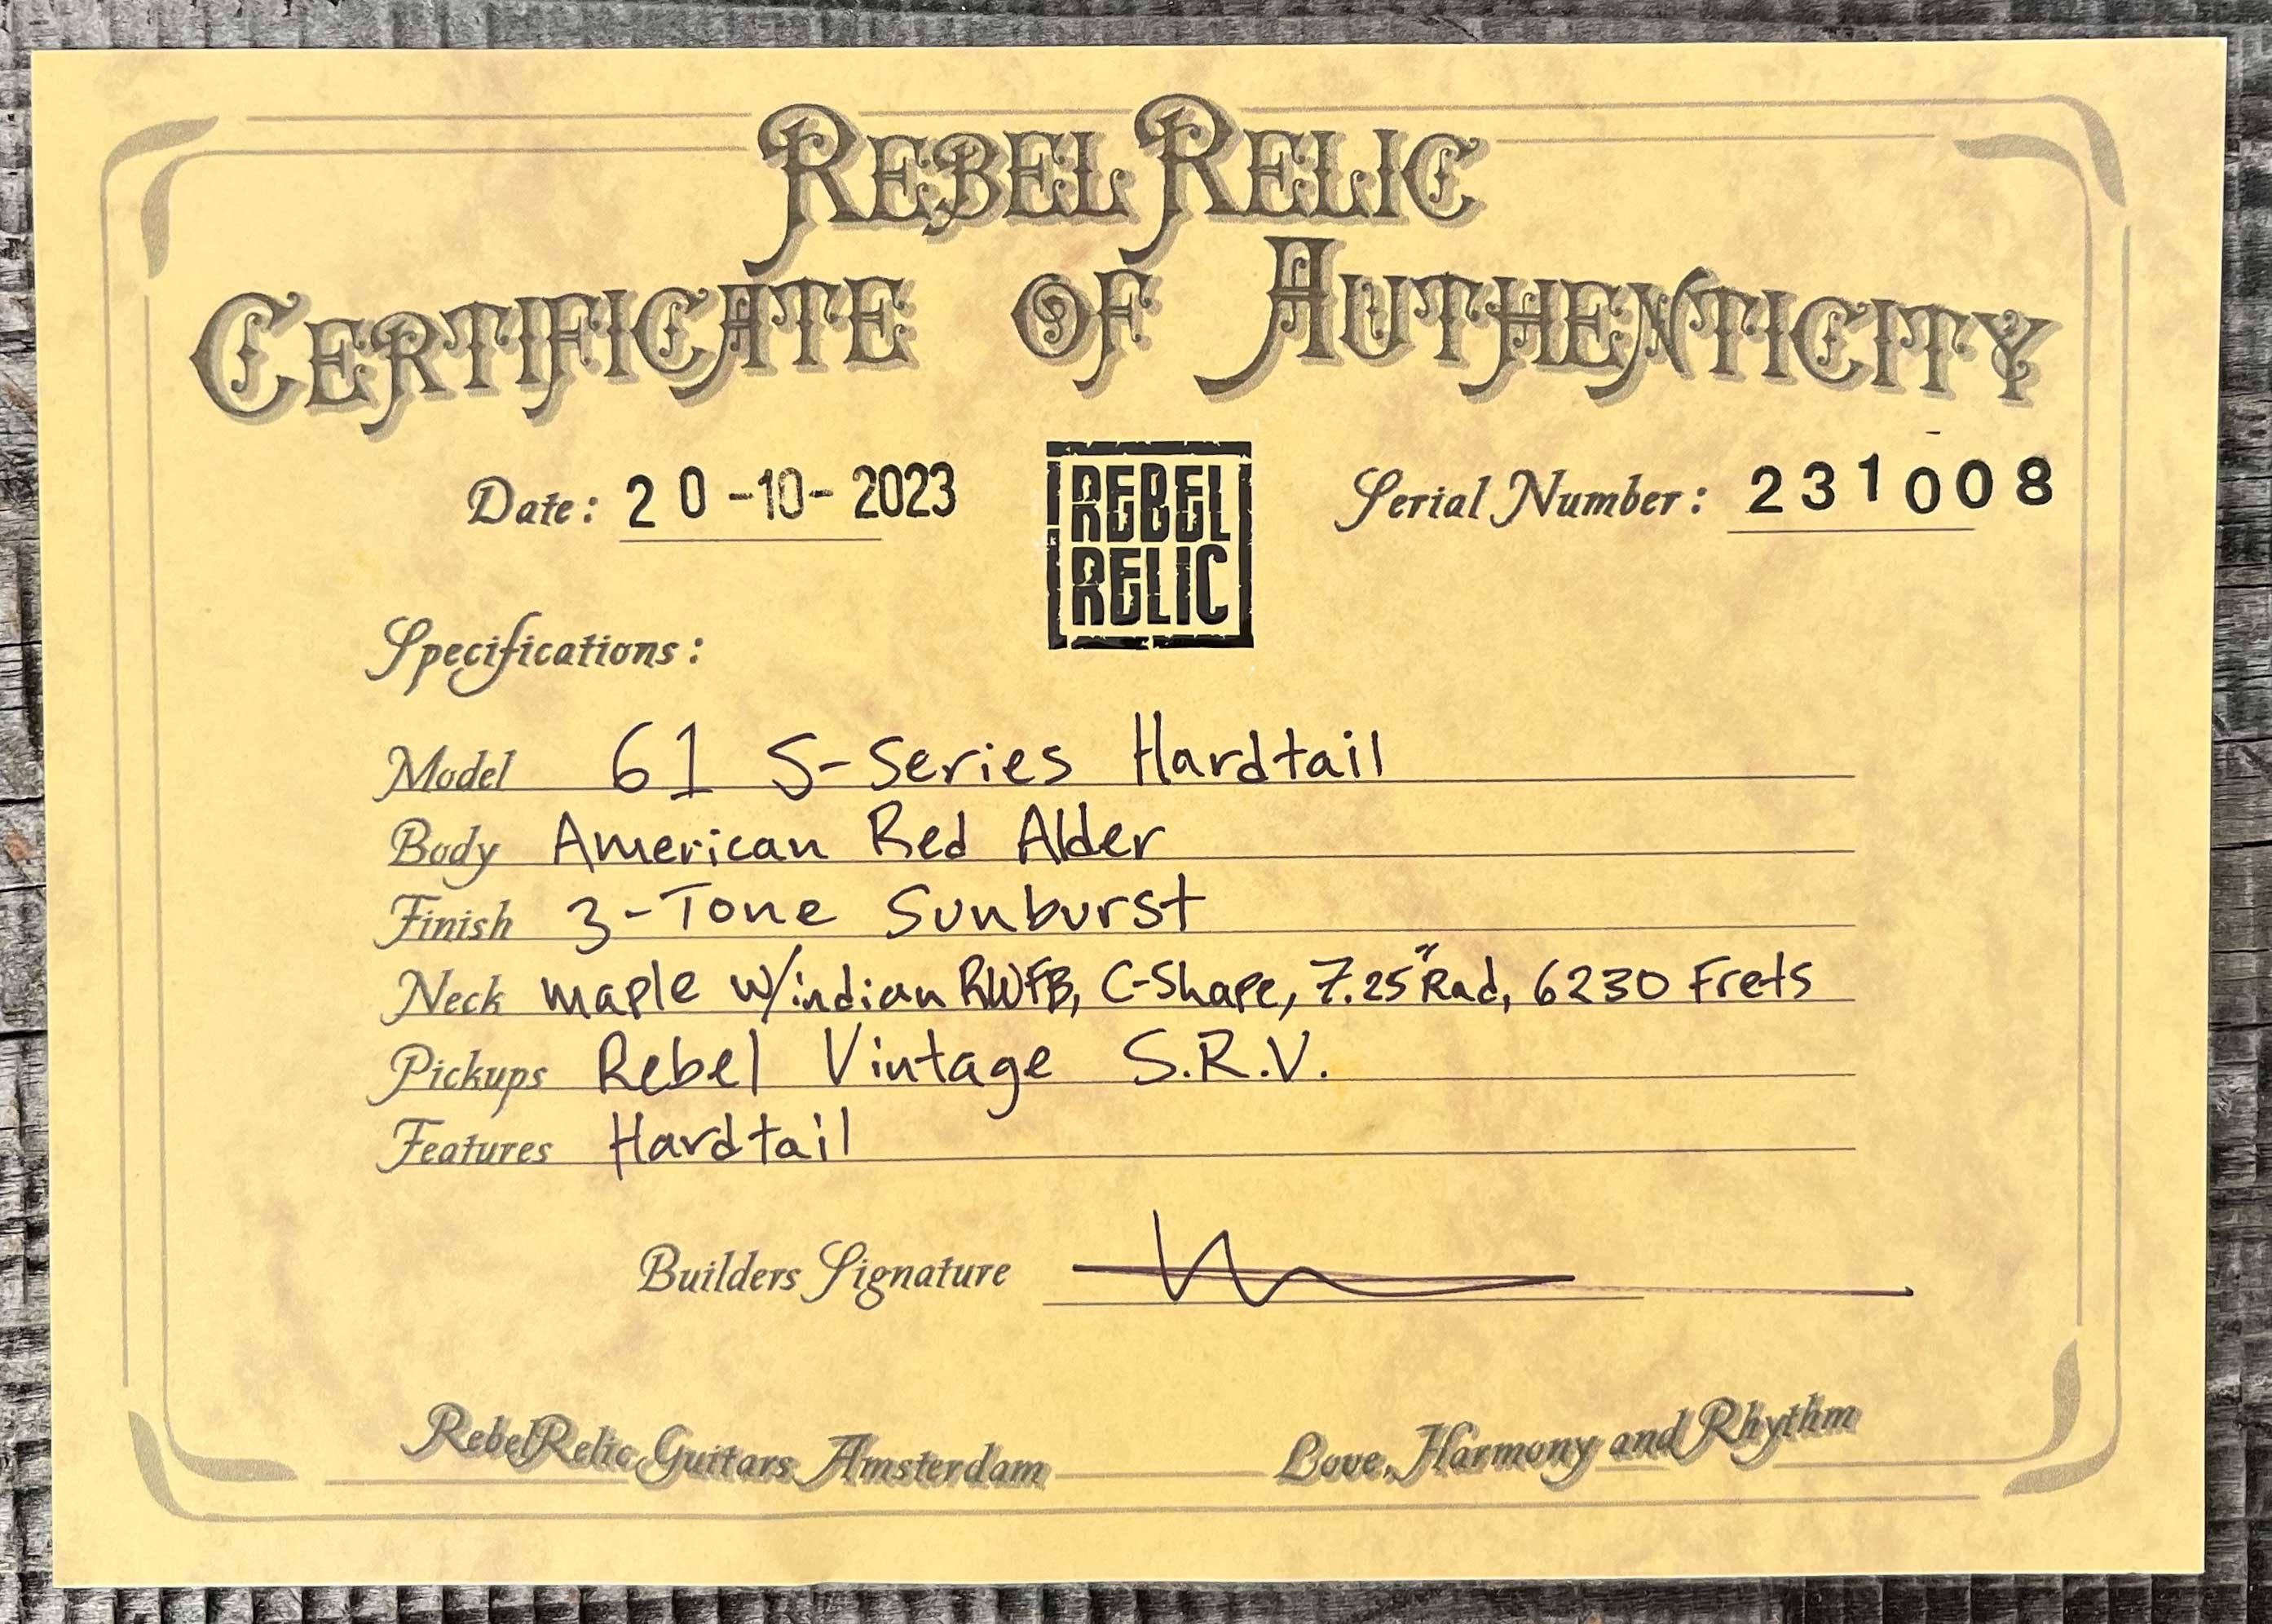 REBEL RELIC
CERTIFICATE OF AUTHENTICITY
Date: 20-10-2023
REBEL
RELIC
Serial Number: 231008
Specifications:
Model 61 S-Series Hardtail
Body American Red Alder
Finish 3-Tone Sunburst
Neck maple w/indian RWFB, C-Shape, 7.25" Rad, 6230 Frets
Pickups Rebel Vintage S.R.V.
Features Hardtail
Builders Signature
RebelRelic Guitars Amsterdam
Love, Harmony and Rhythm